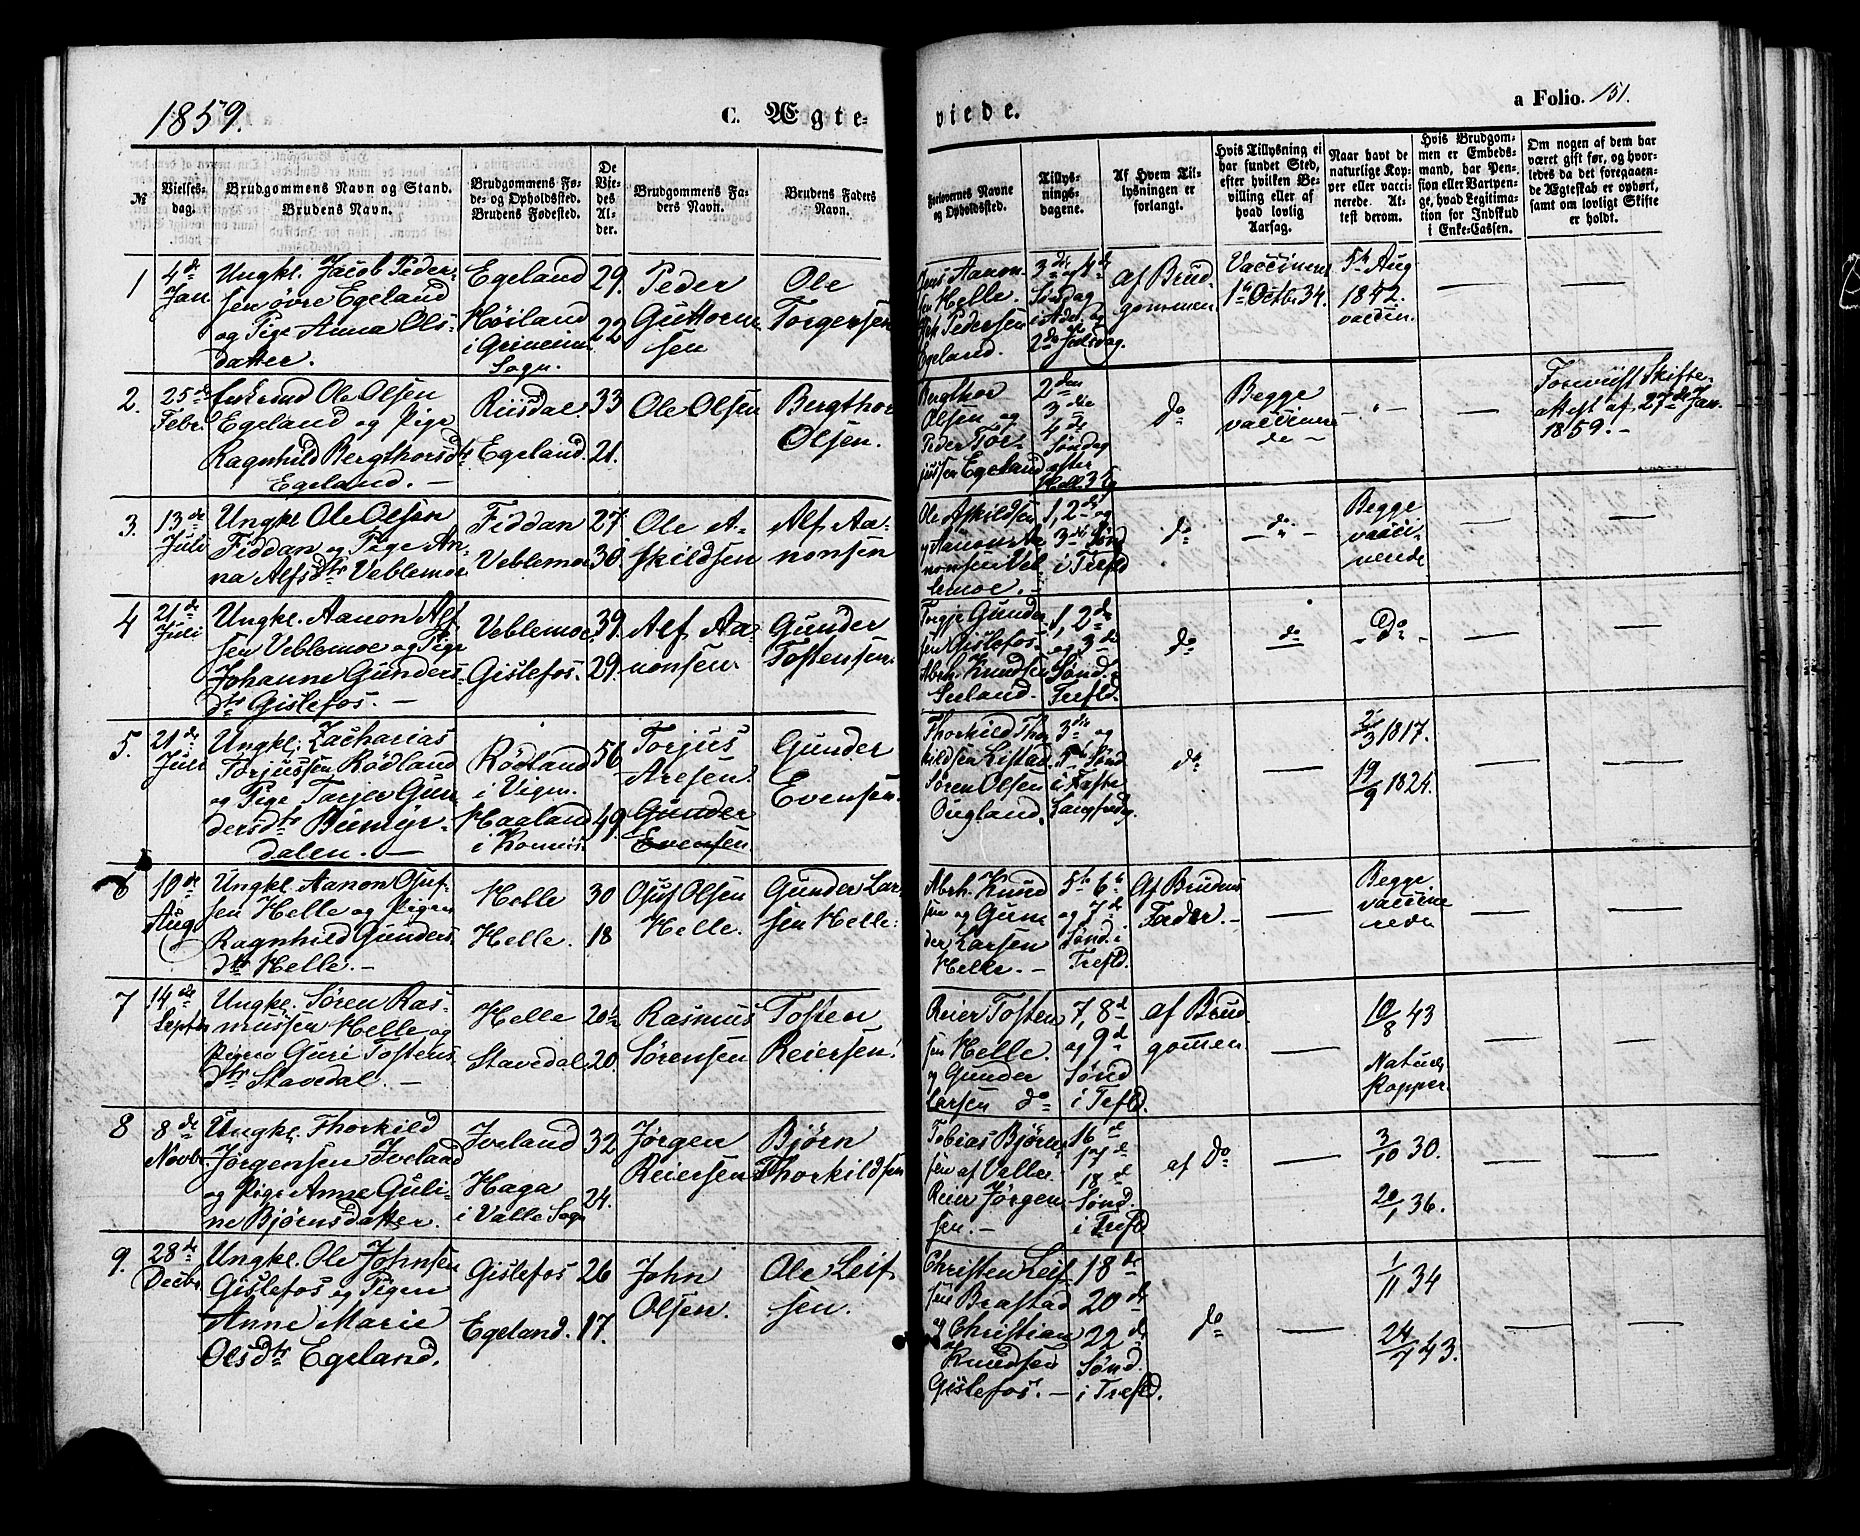 1859.
C. Ægteviede.
a Folio. 151.
№
Vielsesdag.
Brudgommens Navn og Stand. Brudens Navn.
Brudgommens Føde- og Opholdssted. Brudens Fødested.
De Viedes Alder.
Brudgommens Faders Navn.
Brudens Faders Navn.
Forlovernes Navne og Opholdsted.
Tillysningsdagene.
Af Hvem Tillysningen er forlangt.
Hvis Tillysning ei har fundet Sted, efter hvilken Bevilling eller af hvad lovlig Aarsag.
Naar havt de naturlige Kopper eller vaccinerede. Attest derom.
Hvis Brudgommen er Embedsmand, har Pension eller Vartpenge, hvad Legitimation for Indskud i Enke-Cassen.
Om nogen af dem har været gift før, og hvorledes da det foregaaende Ægteskab er ophørt, samt om lovligt Skifte er holdt.
1
4de Jan
Ungkl. Jacob Peder-
sen øvre Egeland
og Pige Anna Ols-
datter.
Egeland
Høiland
i Grimeim
Sogn.
29.
22
Peder
Guttorm
sen
Ole
Torgersen
Jens Aanon
sen Helle.
Pedersen
Egeland.
3die og 4de
Søndag
i Adv. og
2de Juledag.
af Brud
gommen
Vaccineret
1ste Octbr 34.
5te Aug
1842.
vaccin.
—
—
2.
25de Febr.
Enkemd Ole Olsen
Egeland og Pige
Ragnhild Bergthorsdtr
Egeland. —
Risdal
Egeland.
33
21.
Ole Olsen
Bergthor
Olsen.
Bergthor
Olsen og
Peder Tor-
jussen Egeland
2den
3die
4de
Søndag
efter
Hell. 3 Kg
do
Begge
vaccinere
de —
- " -
—
Forevist Skifte-
attest af 27de Jan.
1859. —
3.
13de Juli
Ungkl. Ole Olsen
Fiddan og Pige An-
na Alfsdtr Veblemoe
Fiddan
Veblemoe
27.
30.
Ole A-
skildsen
Alf Aa-
nonsen
Ole Askildsen
og Aanon Aa
nonsen Veb
lemoe. —
1, 2de og
3die Sønd
i Trefld
do
— do —
Begge
vacci-
nerede
—
—
4
21de Juli
Ungkl. Aanon Alf
sen Veblemoe og Pige
Johanne Gunders
dtr Gislefos. —
Veblemoe
Gislefos.
39.
29.
Alf Aa
nonsen.
Gunder
Tostensen.
Torje Gunder
sen Gislefos.
Abrh. Knudsen
Seeland.
1, 2de
og 3de
Sønd.
Trefld.
do
do
- Do -
—
—
5.
21de Juli
Ungkl. Zacharias
Torjussen Rødland
og Pige Tarjer Gun
dersdtr Bumyr-
dalen. —
Rødland
i Vigm.
Haaland
i Konnis
56
49.
Torjus
Aresen.
Gunder
Evensen
Gunder
Evensen.
Thorkild Thor
kildsen Listad
Søren Olsen
Ougland.
3die og
5te Sønd
i Faste
Langfredg.
do
—
25/3 1817.
19/9 1824.
—
—
6
10de Aug
Ungkl. Aanon Osuf-
sen Helle og Pigen
Ragnhild Gunders
dtr Helle. —
Helle
Helle.
30
18
Osuf Olsen
Helle.
Gunder Lar
sen Helle.
Abrh. Knud
sen og Gun
der Larsen
Helle. —
5te 6te
og 7de
Sønd. i
Trefld.
Af Brudens
Fader. —
—
Begge
vaccine
rede
—
—
7
14de Septbr
Ungkl. Søren Ras-
mussen Helle og
Pigen Guri Tostens
dtr Stavedal. —
Helle
Stavedal.
20½
20.
Rasmus
Sørensen
Tosten
Reiersen.
Reier Tosten
sen Helle.
og Gunder
Larsen do
7, 8de
og 9de
Sønd
i Trefld.
af Brud
gommen
—
10/8 43
Naturl.
Kopper
—
—
8
8de Novbr.
Ungkl. Thorkild
Jørgensen Iveland
og Pige Anne Guli-
ne Bjørnsdatter.
Iveland
Haga
i Valle Sogn
32
24.
Jørgen
Reiersen
Bjørn
Thorkildsen
Tobias Bjørn
sen af Valle.
Reier Jørgen
sen. —
16de
17de
18de
Sønd.
i Trefld
af do
—
3/10 30.
20/1 36.
—
—
9.
28de Decbr
Ungkl. Ole Johnsen
Gislefos og Pigen
Anne Marie
Olsdtr Egeland.
Gislefos
Egeland.
26
17.
John
Olsen.
Ole Leif
sen.
Christen Leif
sen Brastad
og Christian
Knudsen
Gislefos. —
18de
20de
22de
Sønd.
i Trefld.
do
—
1/11 34
24/7 43.
—
—